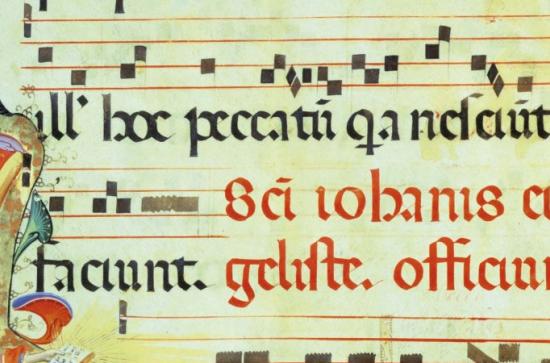 ill' hoc peccatū qa nesciūt
Sc̄i iohanis
faciunt. geliste. officiu